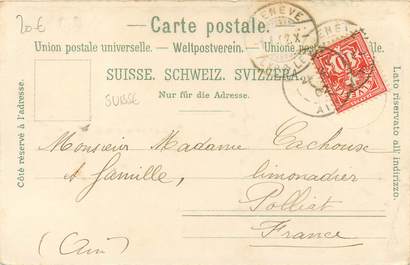 20€
Carte postale.
Union postale universelle. – Weltpostverein. – Unione postale universale
SUISSE. SCHWEIZ. SVIZZERA.
Nur für die Adresse.
Côté réservé à l'adresse.
Lato riservato all'indirizzo.
SUISSE
GENÈVE
Monsieur Madame Cachoux
& famille, limonadier
Polliat
(Ain) France